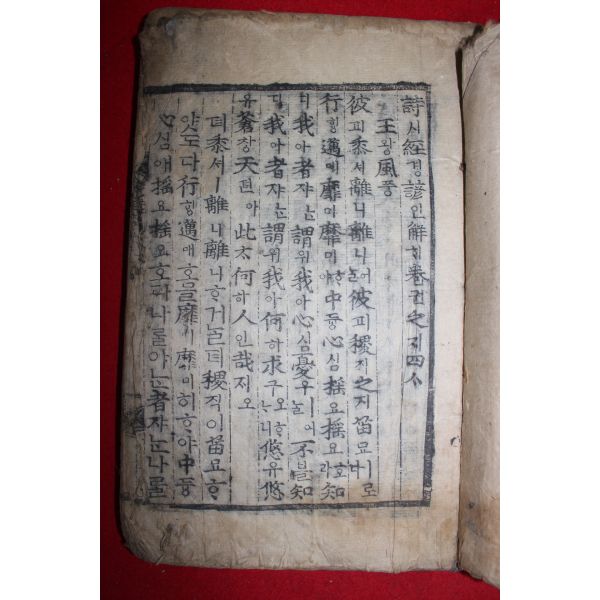 詩시經경諺언解ᄒᆡ卷권之지四ᄉᆞ
王왕風풍
彼피黍셔離니離니어ᄂᆞᆯ彼피稷직之지苗묘ㅣ로다
行ᄒᆡᆼ邁매靡미靡미ᄒᆞ야中듕心심搖요搖요호라知
디我아者쟈ᄂᆞᆫ謂위我아心심憂우ㅣ어ᄂᆞᆯ不블知
디我아者쟈ᄂᆞᆫ謂위我아何하求구오ᄒᆞᄂᆞ니悠유悠
유蒼창天텬아此ᄎᆞ何하人인哉ᄌᆡ오
뎌黍셔ㅣ離니離니ᄒᆞ거ᄂᆞᆯ뎌稷직이苗묘ᄒᆞ
얏도다行ᄒᆡᆼ邁매ᄒᆞ믈靡미靡미히ᄒᆞ야中듕
心심애搖요搖요호라나ᄅᆞᆯ아ᄂᆞᆫ者쟈ᄂᆞᆫ나ᄅᆞᆯ